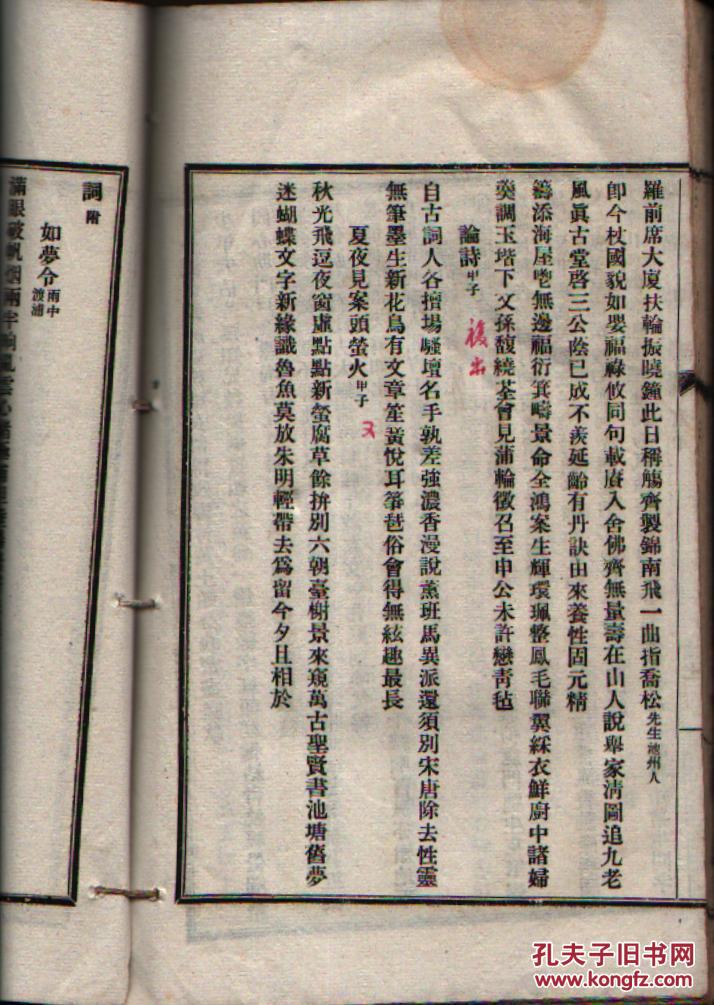 羅前席大廈扶輪振曉鐘此日稱觴齊製錦南飛一曲指喬松先生池州人
卽今杖國貌如嬰福祿攸同句載賡入舍佛齊無量壽在山人說舉家淸圖追九老
風眞古堂啓三公蔭已成不羨延齡有丹訣由來養性固元精
籌添海屋喫無邊福衍箕疇景命全鴻案生輝環珮整鳳毛聯翼綵衣鮮廚中諸婦
羹調玉堦下文孫馥繞荃會見蒲輪徵召至申公未許戀靑氈
論詩甲子 複出
自古詞人各擅場騷壇名手孰差強濃香漫說薰班馬異派還須別宋唐除去性靈
無筆墨生新花鳥有文章笙簧悅耳箏琶俗會得無絃趣最長
夏夜見案頭螢火甲子 又
秋光飛逗夜窗虛點點新螢腐草餘拚別六朝臺榭景來窺萬古聖賢書池塘舊夢
迷蝴蝶文字新緣識魯魚莫放朱明輕帶去爲留今夕且相於
詞附
如夢令雨中渡浦
滿眼破帆烟雨
孔夫子旧书网
www.kongfz.com